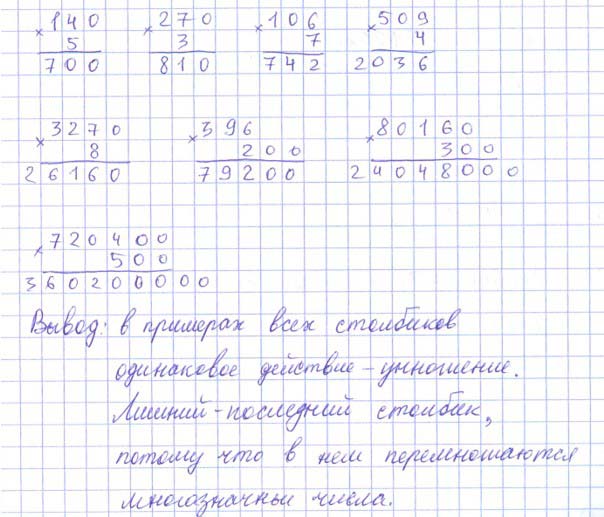 ×140 ×270 ×106 ×509
5 3 7 4
700 810 742 2036
×3270 ×396 ×80160
8 200 300
26160 79200 24048000
×720400
500
360200000
Вывод: в примерах всех столбиков
одинаковое действие – умножение.
Лишний – последний столбик,
потому что в нем перемножаются
многозначные числа.